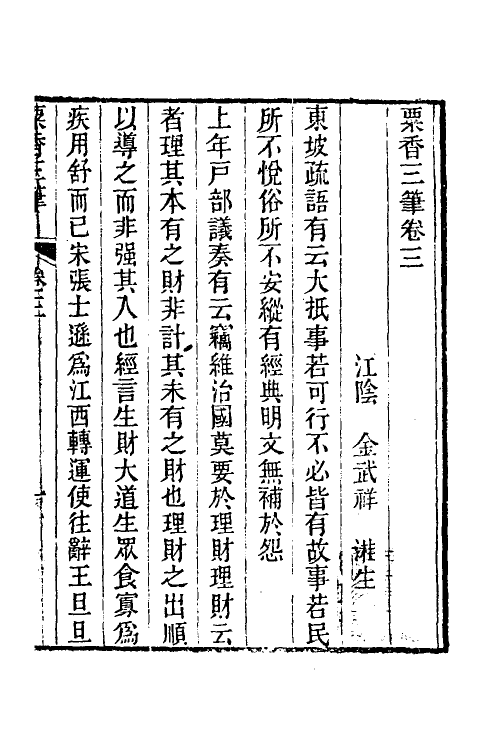 粟香三筆卷三
江陰　金武祥　溎生
東坡疏語有云大抵事若可行不必皆有故事若民
所不悅俗所不安縱有經典明文無補於怨
上年戸部議奏有云竊維治國莫要於理財理財云
者理其本有之財非計其未有之財也理財之出順
以導之而非强其入也經言生財大道生眾食寡爲
疾用舒而已宋張士遜爲江西轉運使往辭王旦旦
粟香三筆　卷三